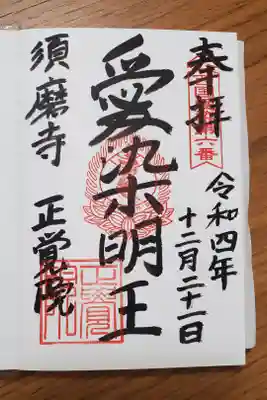 奉拝
令和四年
十二月二十一日
愛染明王
須磨寺 正覚院